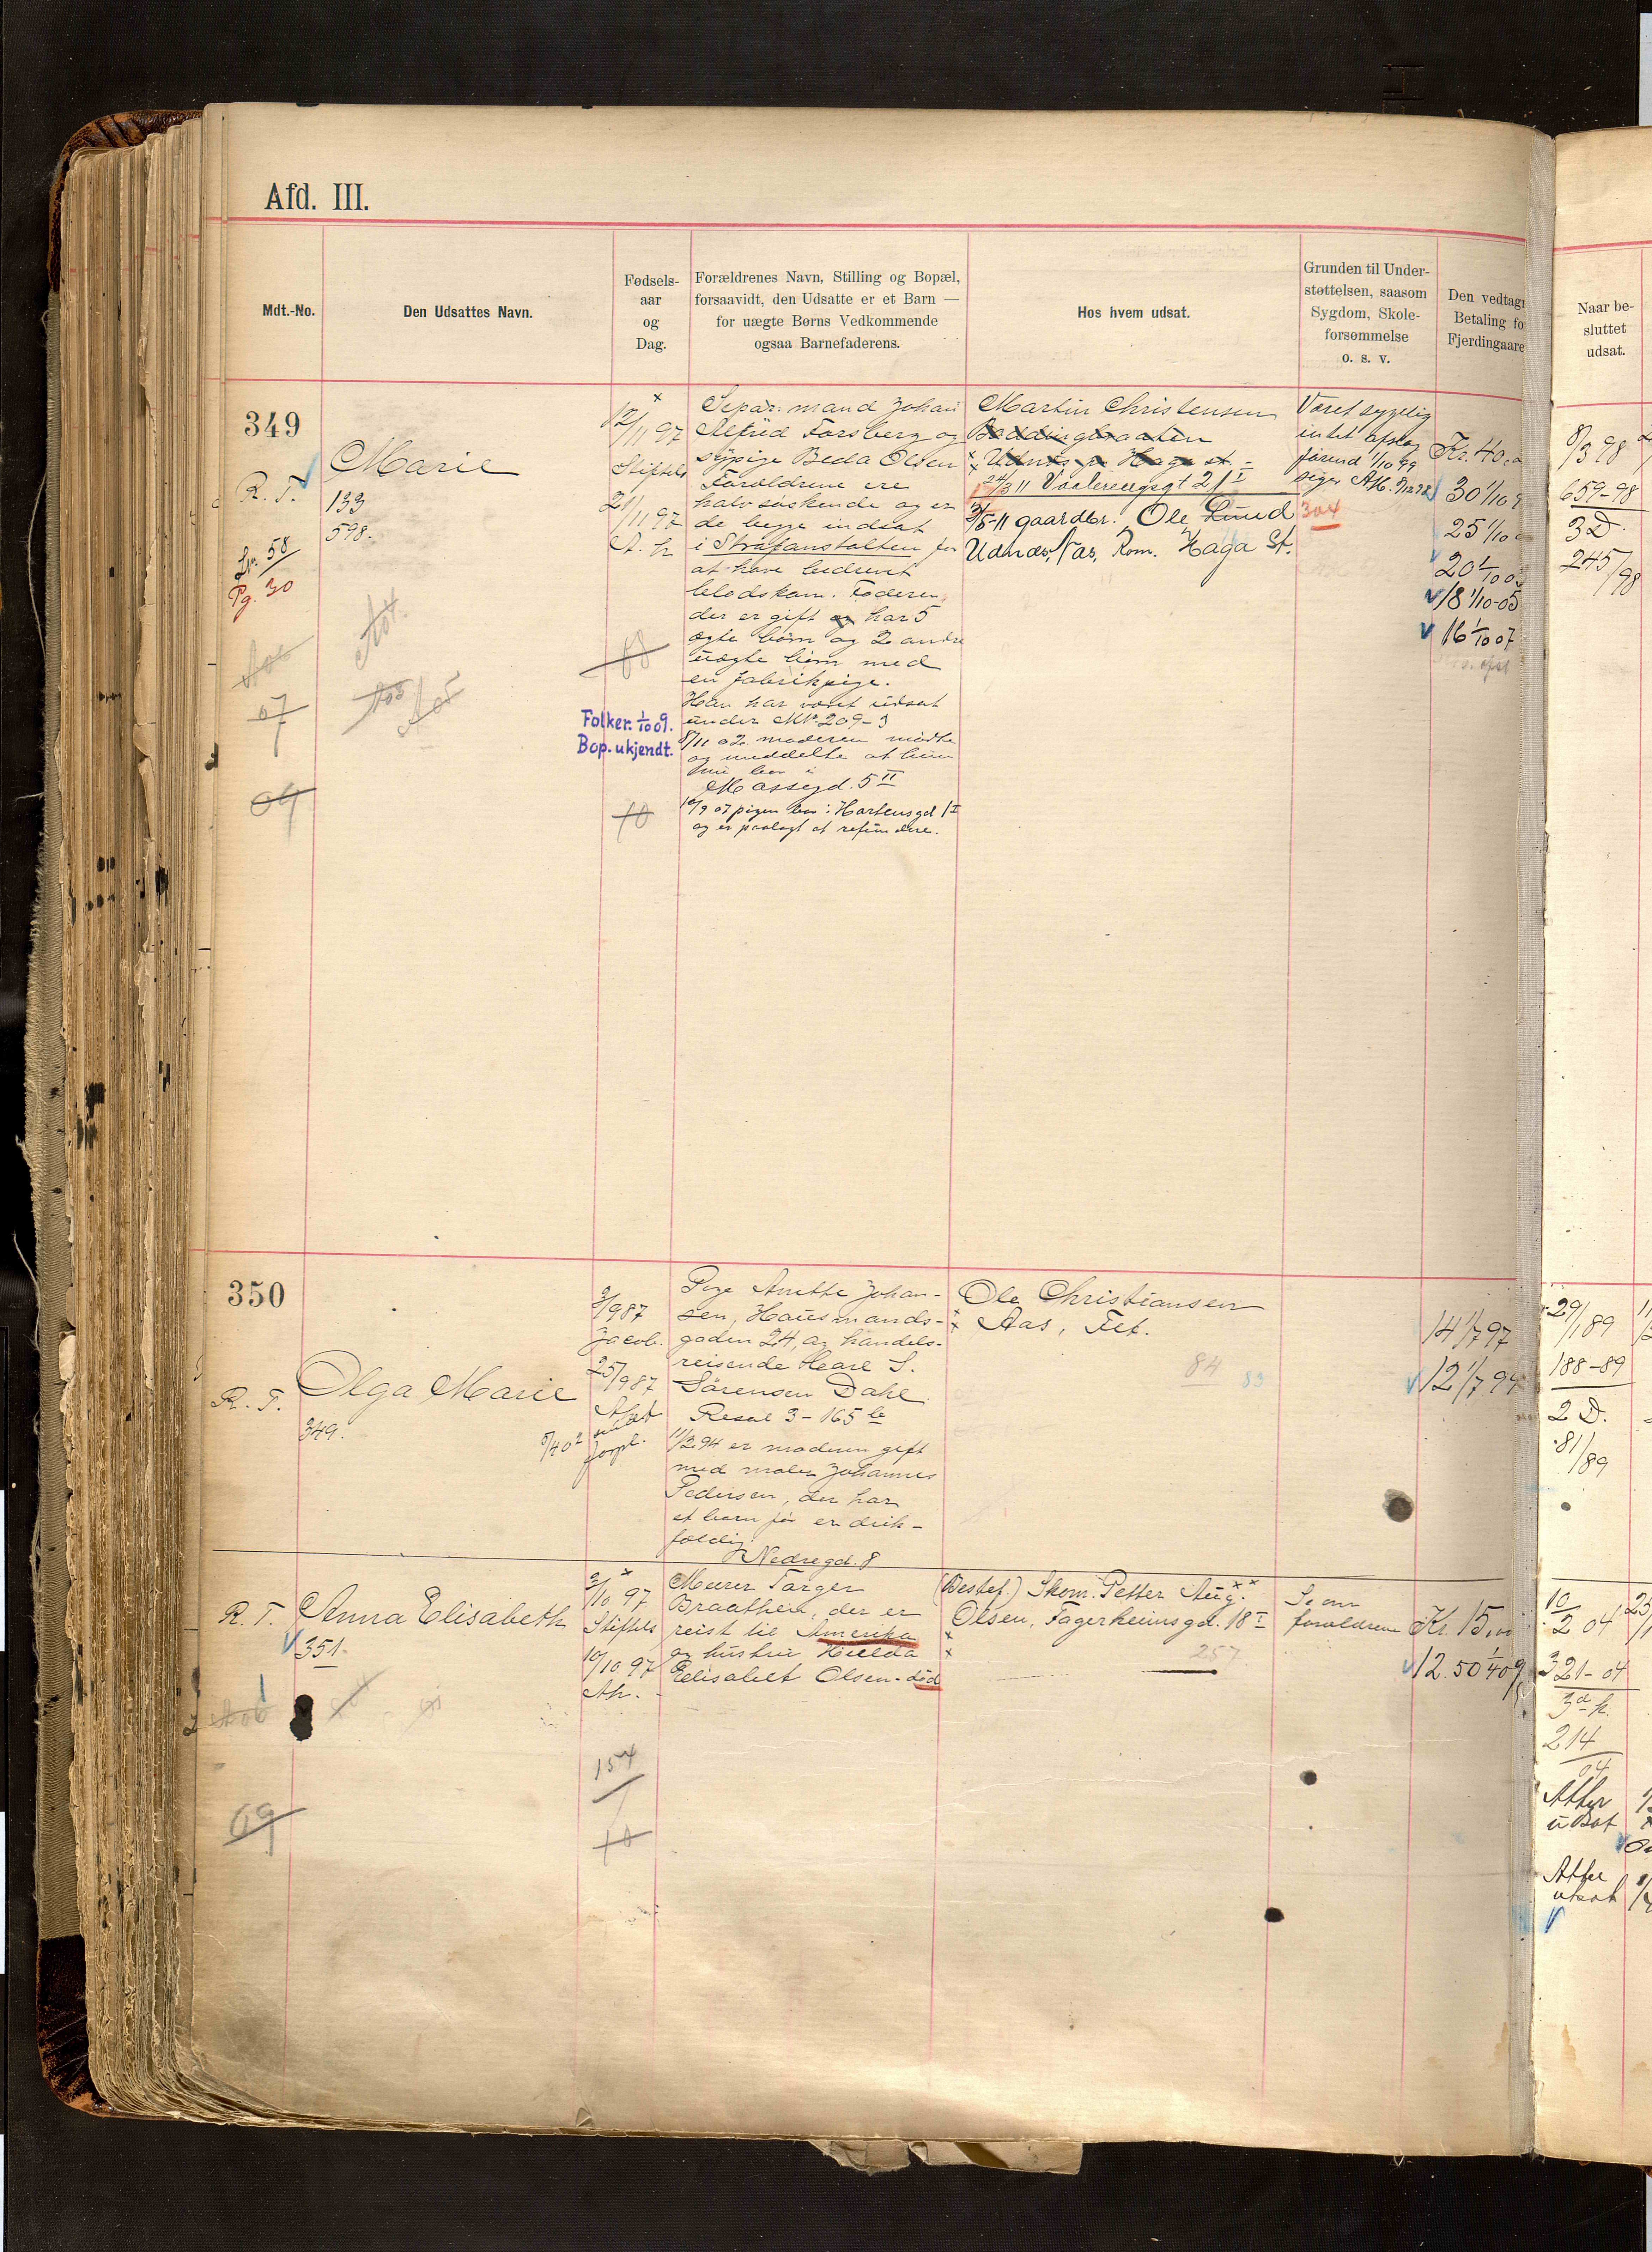 Afd. III.
Mdt.-No.
Den Udsattes Navn.
Fødsels-
aar
og
Dag.
Forældrenes Navn, Stilling og Bopæl,
forsaavidt, den Udsatte er et Barn —
for uægte Børns Vedkommende
ogsaa Barnefaderens.
Hos hvem udsat.
Grunden til Under-
støttelsen, saasom
Sygdom, Skole-
forsømmelse
o. s. v.
Den vedtagn
Betaling fo
Fjerdingaare
Naar be-
sluttet
udsat.
349
R. T.
58
Pg. 30
07
09
Marie
133
598.
12/11 97
Stiftels
21/11 97
Folker. 1/10 09.
Bop. ukjendt.
10
Separ. mand Johan
Alfred Forsberg og
sypige Beda Olsen
Forældrene ere
halv søskende og er
de begge indsat
i Strafanstalten for
at have bedrevet
blodskam. Faderen
der er gift og har 5
ægte børn og 2 andre
uægte børn med
en fabrikpige.
Han har været udsat
under No. 209-3
8/11 02 moderen mødte
og meddelte at hun
nu bor i
Mossegd. 5 II
10/9 07 pigen bor i Hortensgd 1 I
og er paalagt at refundere.
Martin Christensen
Udnæs pr Haga st.
24/3 11 Vaalerengsgt 21 I
3/5-11 gaardbr. Ole Lund 304
Udnæs, Nas, Rom. Haga St.
Været sygelig
intet afslag
førend 1/10 99
siger
Kr. 40.
30 1/10 9
25 1/10
20 1/10 03
18 1/10-05
16 1/10 07
8/3 98
659-98
3 D.
245/98
350
R. T.
Olga Marie
349.
3/9 87
Jacob.
25/9 87
forpl.
Pige Anette Johan-
sen, Hausmands-
gaden 24, og handels-
reisende Karl S.
Sørensen Dahl
Resol 3-165
11/3 94 er moderen gift
med maler Johannes
Pedersen, der har
et barn før er drik-
fældig.
Nedregd. 8
Ole Christiansen
Aas, Fet.
84
83
14 1/7 97
12 1/7 99
29/1 89
188-89
2 D.
81/89
R. T.
Anna Elisabeth
351.
09
2/10 97
Stiftels
10/10 97
154
10
Murer Torger
Braathen, der er
reist til Amerika
og hustru Hulda
Elisabet Olsen - død
(Bestef.) Skom. Petter Aug.
Olsen, Fagerheimsgd. 18 I
257
Se om
forældrene
Kr. 15,00
12.50 1/4 09
10/2 04
321-04
214
04
Atter
udsat
Atter
utsat